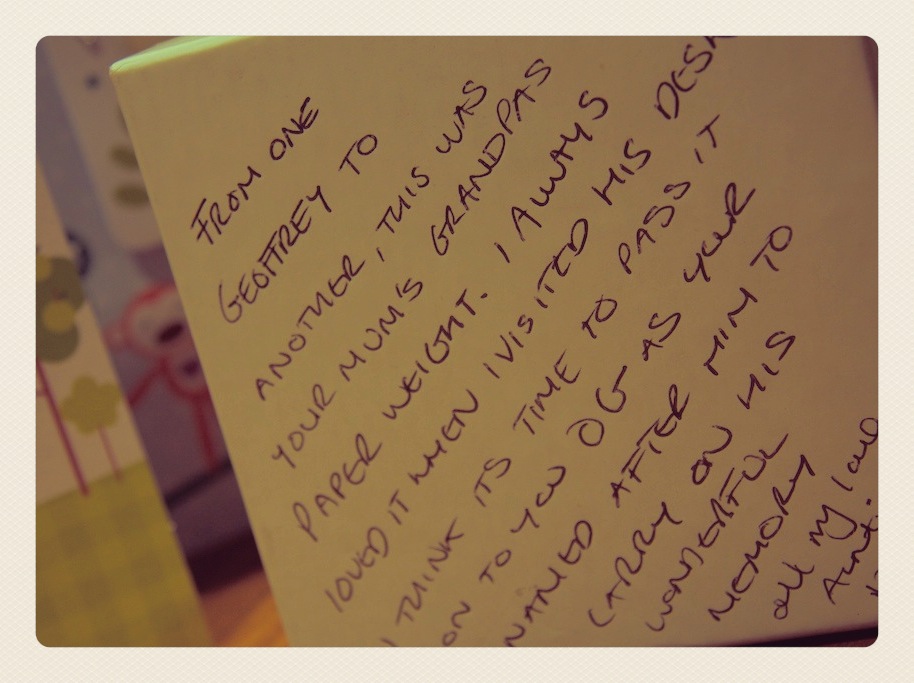 FROM ONE
GEOFFREY TO
ANOTHER, THIS WAS
YOUR MUM'S GRANDPAS
PAPER WEIGHT. I ALWAYS
LOVED IT WHEN I VISITED HIS DESK
I THINK ITS TIME TO PASS IT
ON TO YOU OG AS YOUR
NAMED AFTER HIM TO
CARRY ON HIS
WONDERFUL
MEMORY
all my love
Aunt.